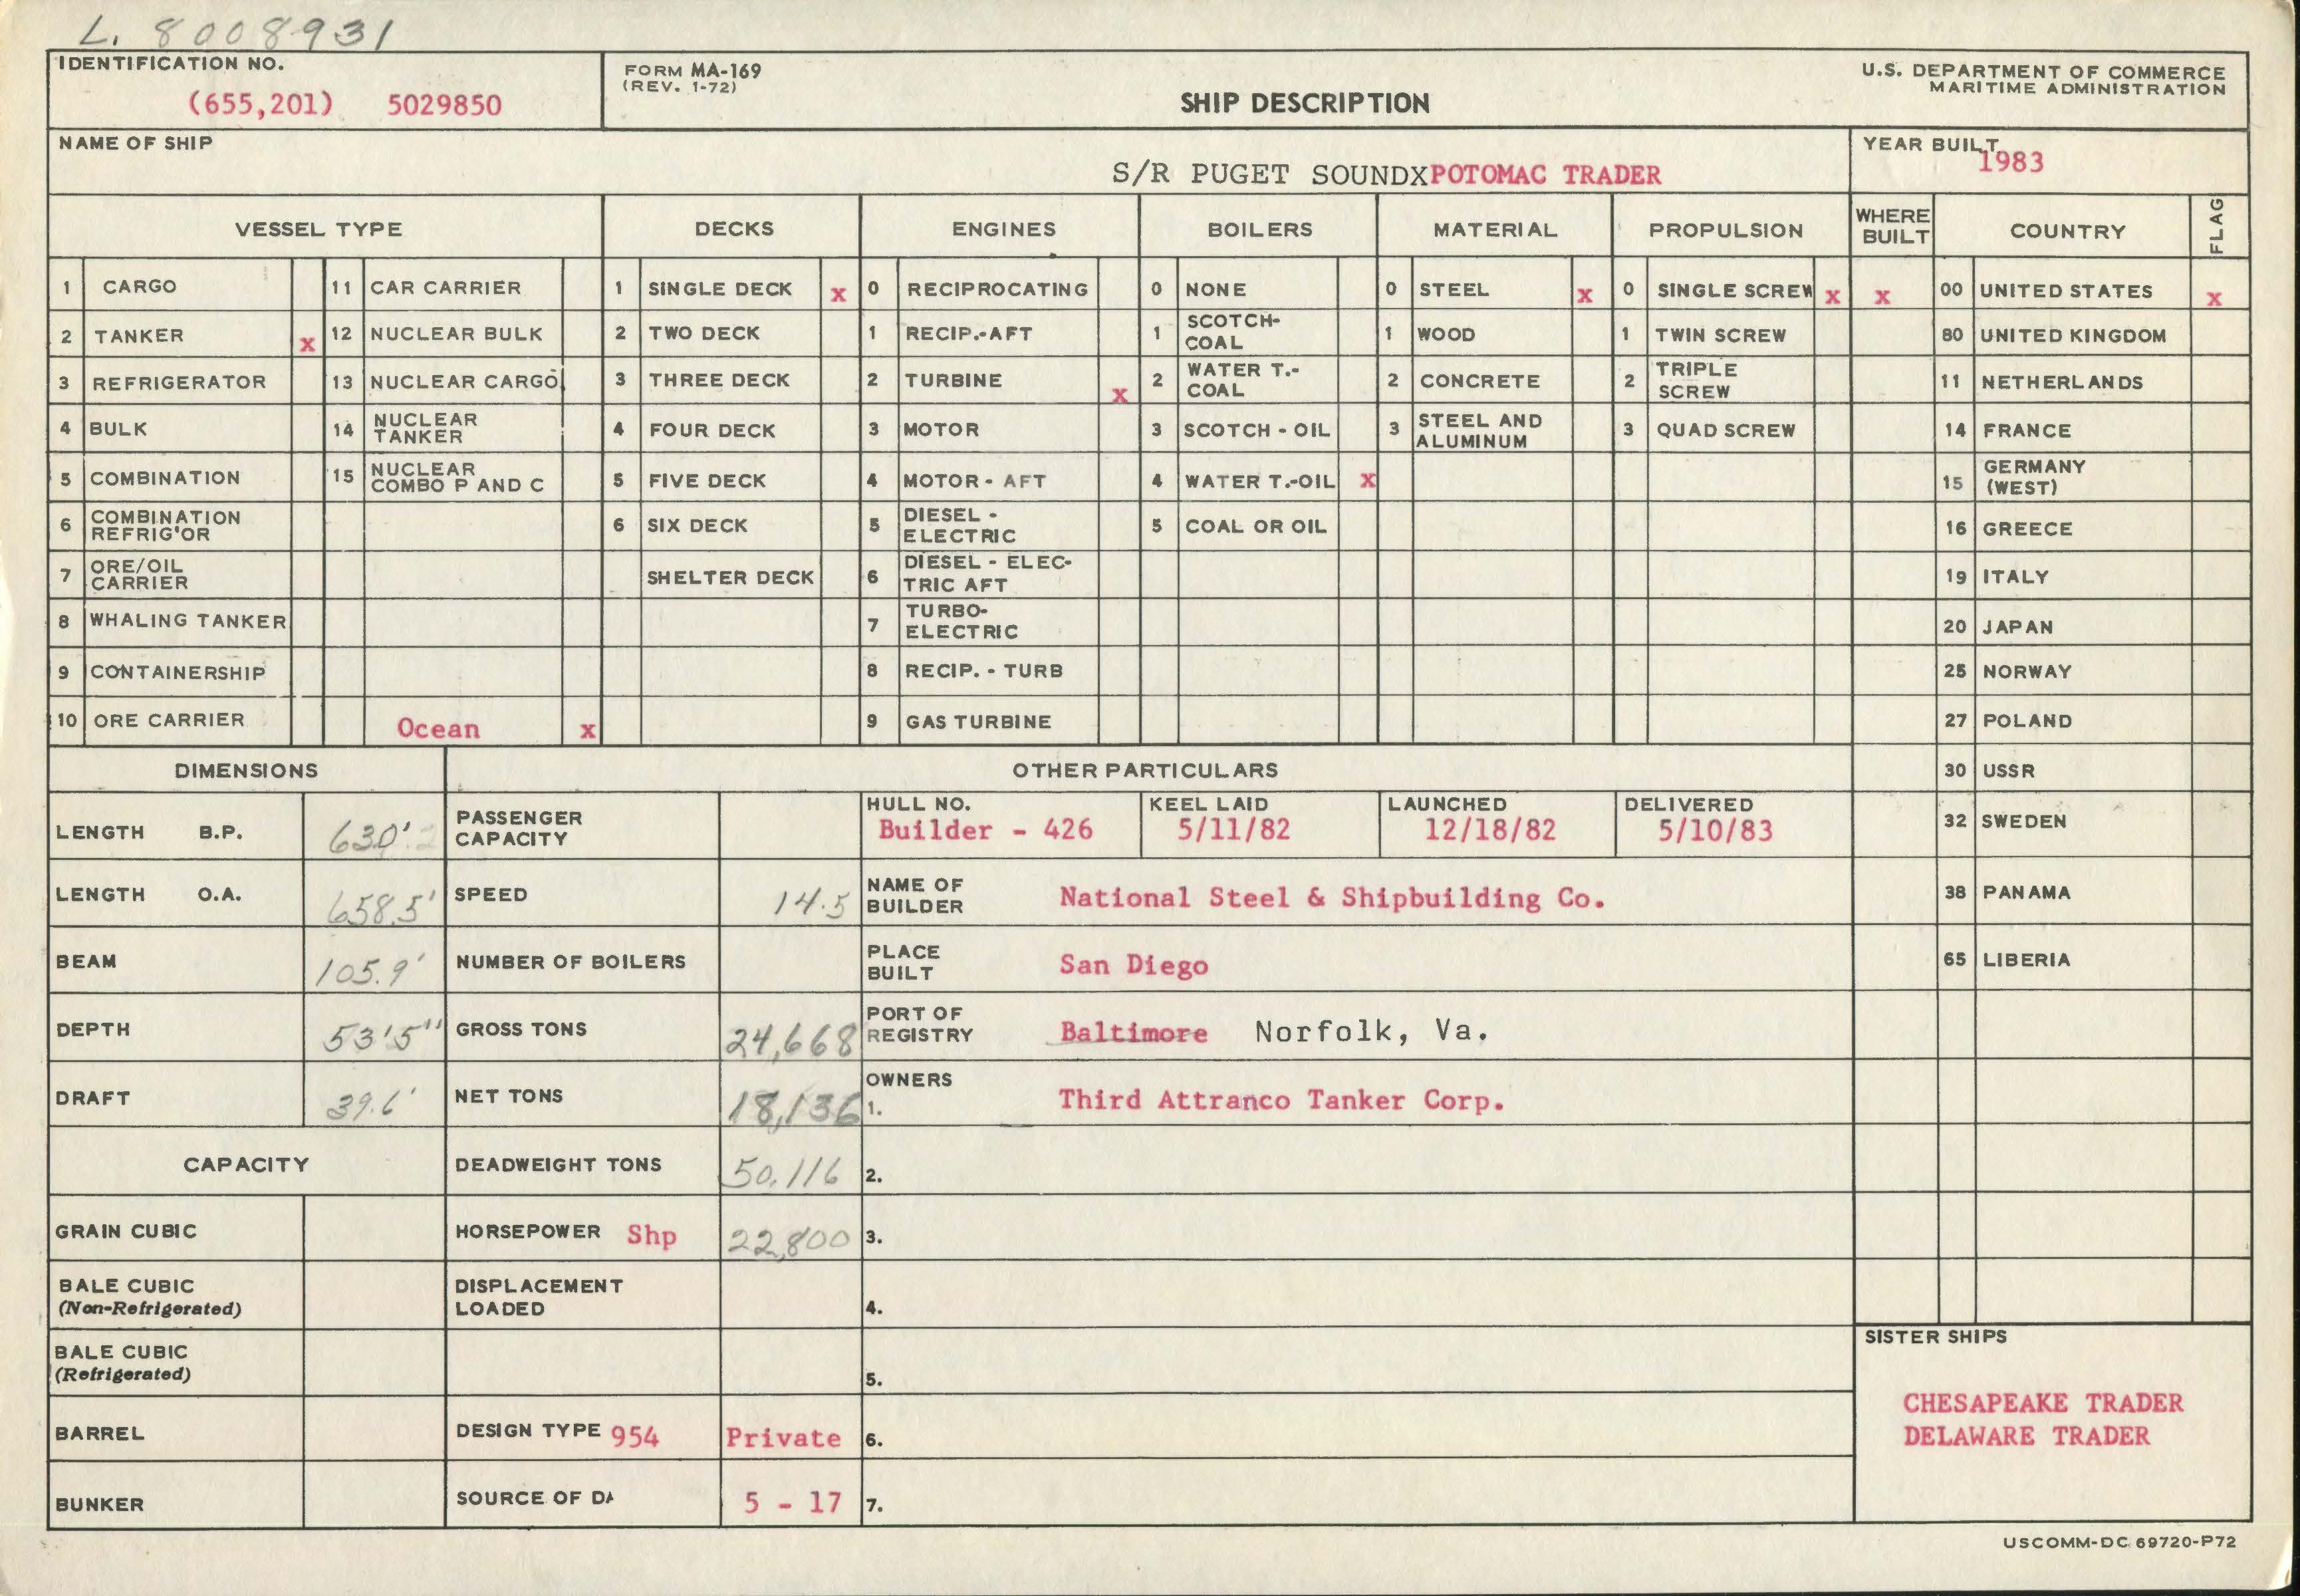 L. 8008931
IDENTIFICATION NO.
(655,201) 5029850
FORM MA-169
(REV. 1-72)
SHIP DESCRIPTION
U.S. DEPARTMENT OF COMMERCE
MARITIME ADMINISTRATION
NAME OF SHIP
S/R PUGET SOUNDXPOTOMAC TRADER
YEAR BUILT
1983
VESSEL TYPE DECKS ENGINES BOILERS MATERIAL PROPULSION WHERE BUILT COUNTRY FLAG
1 CARGO 11 CAR CARRIER 1 SINGLE DECK x 0 RECIPROCATING 0 NONE 0 STEEL x 0 SINGLE SCREW x x 00 UNITED STATES x
2 TANKER x 12 NUCLEAR BULK 2 TWO DECK 1 RECIP.-AFT 1 SCOTCH-COAL 1 WOOD 1 TWIN SCREW 80 UNITED KINGDOM
3 REFRIGERATOR 13 NUCLEAR CARGO 3 THREE DECK 2 TURBINE x 2 WATER T.-COAL 2 CONCRETE 2 TRIPLE SCREW 11 NETHERLANDS
4 BULK 14 NUCLEAR TANKER 4 FOUR DECK 3 MOTOR 3 SCOTCH - OIL 3 STEEL AND ALUMINUM 3 QUAD SCREW 14 FRANCE
5 COMBINATION 15 NUCLEAR COMBO P AND C 5 FIVE DECK 4 MOTOR - AFT 4 WATER T.-OIL x 15 GERMANY (WEST)
6 COMBINATION REFRIG'OR 6 SIX DECK 5 DIESEL - ELECTRIC 5 COAL OR OIL 16 GREECE
7 ORE/OIL CARRIER SHELTER DECK 6 DIESEL - ELEC-TRIC AFT 19 ITALY
8 WHALING TANKER 7 TURBO-ELECTRIC 20 JAPAN
9 CONTAINERSHIP 8 RECIP. - TURB 25 NORWAY
10 ORE CARRIER Ocean x 9 GAS TURBINE 27 POLAND
DIMENSIONS OTHER PARTICULARS 30 USSR
LENGTH B.P. 630' PASSENGER CAPACITY HULL NO. Builder - 426 KEEL LAID 5/11/82 LAUNCHED 12/18/82 DELIVERED 5/10/83 32 SWEDEN
LENGTH O.A. 658.5' SPEED 14.5 NAME OF BUILDER National Steel & Shipbuilding Co. 38 PANAMA
BEAM 105.9' NUMBER OF BOILERS PLACE BUILT San Diego 65 LIBERIA
DEPTH 53'5" GROSS TONS 24,668 PORT OF REGISTRY Baltimore Norfolk, Va.
DRAFT 39.6' NET TONS 18,136 OWNERS 1. Third Attranco Tanker Corp.
CAPACITY DEADWEIGHT TONS 50,116 2.
GRAIN CUBIC HORSEPOWER Shp 22,800 3.
BALE CUBIC (Non-Refrigerated) DISPLACEMENT LOADED 4.
BALE CUBIC (Refrigerated) 5.
SISTER SHIPS
CHESAPEAKE TRADER
DELAWARE TRADER
BARREL DESIGN TYPE 954 Private 6.
BUNKER SOURCE OF DA 5 - 17 7.
USCOMM-DC 69720-P72